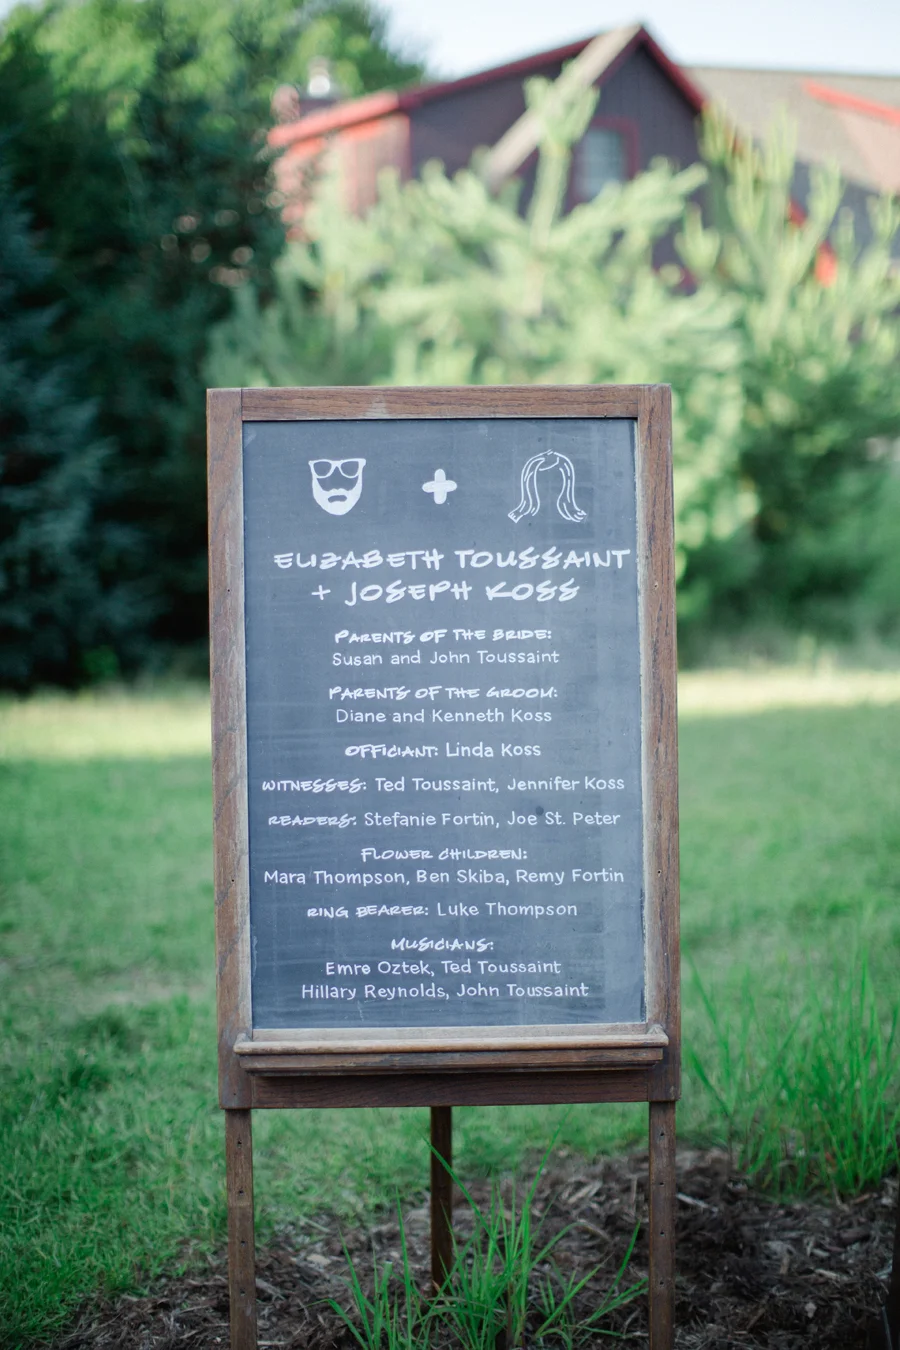 ELIZABETH TOUSSAINT
+ JOSEPH KOSS
PARENTS OF THE BRIDE:
Susan and John Toussaint
PARENTS OF THE GROOM:
Diane and Kenneth Koss
OFFICIANT: Linda Koss
WITNESSES: Ted Toussaint, Jennifer Koss
READERS: Stefanie Fortin, Joe St. Peter
FLOWER CHILDREN:
Mara Thompson, Ben Skiba, Remy Fortin
RING BEARER: Luke Thompson
MUSICIANS:
Emre Oztek, Ted Toussaint
Hillary Reynolds, John Toussaint